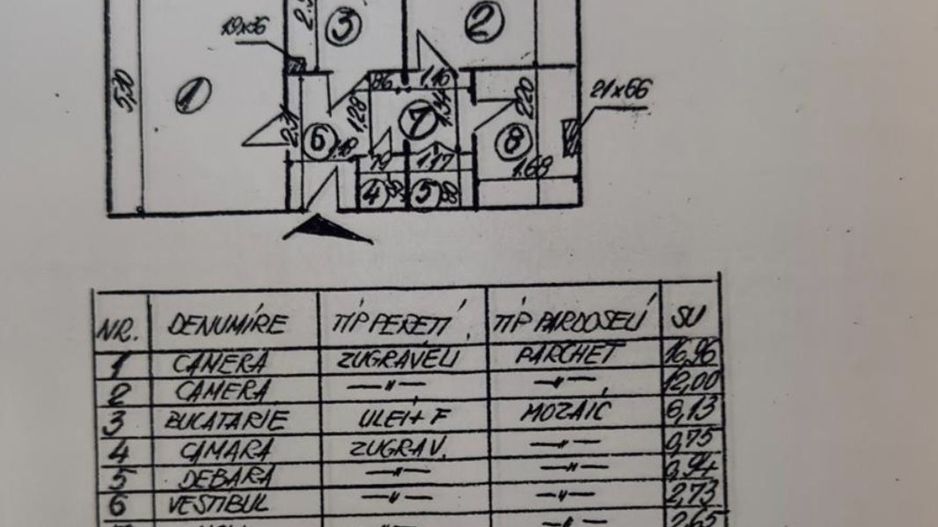 3
2
19x56
5,30
1
86
1.16
2.31
1.28
1.34
7
2.20
21x66
6
1.18
8
79
1.17
1.68
4
5
NR. DENUMIRE TIP PERETI TIP PARDOSELI SU
1 CAMERA ZUGRAVELI PARCHET 16,96
2 CAMERA —〃— —〃— 12,00
3 BUCATARIE ULEI+F MOZAIC 6,13
4 CAMARA ZUGRAV. —〃— 0,75
5 DEBARA —〃— —〃— 0,94
6 VESTIBUL —〃— —〃— 2,73
2,65